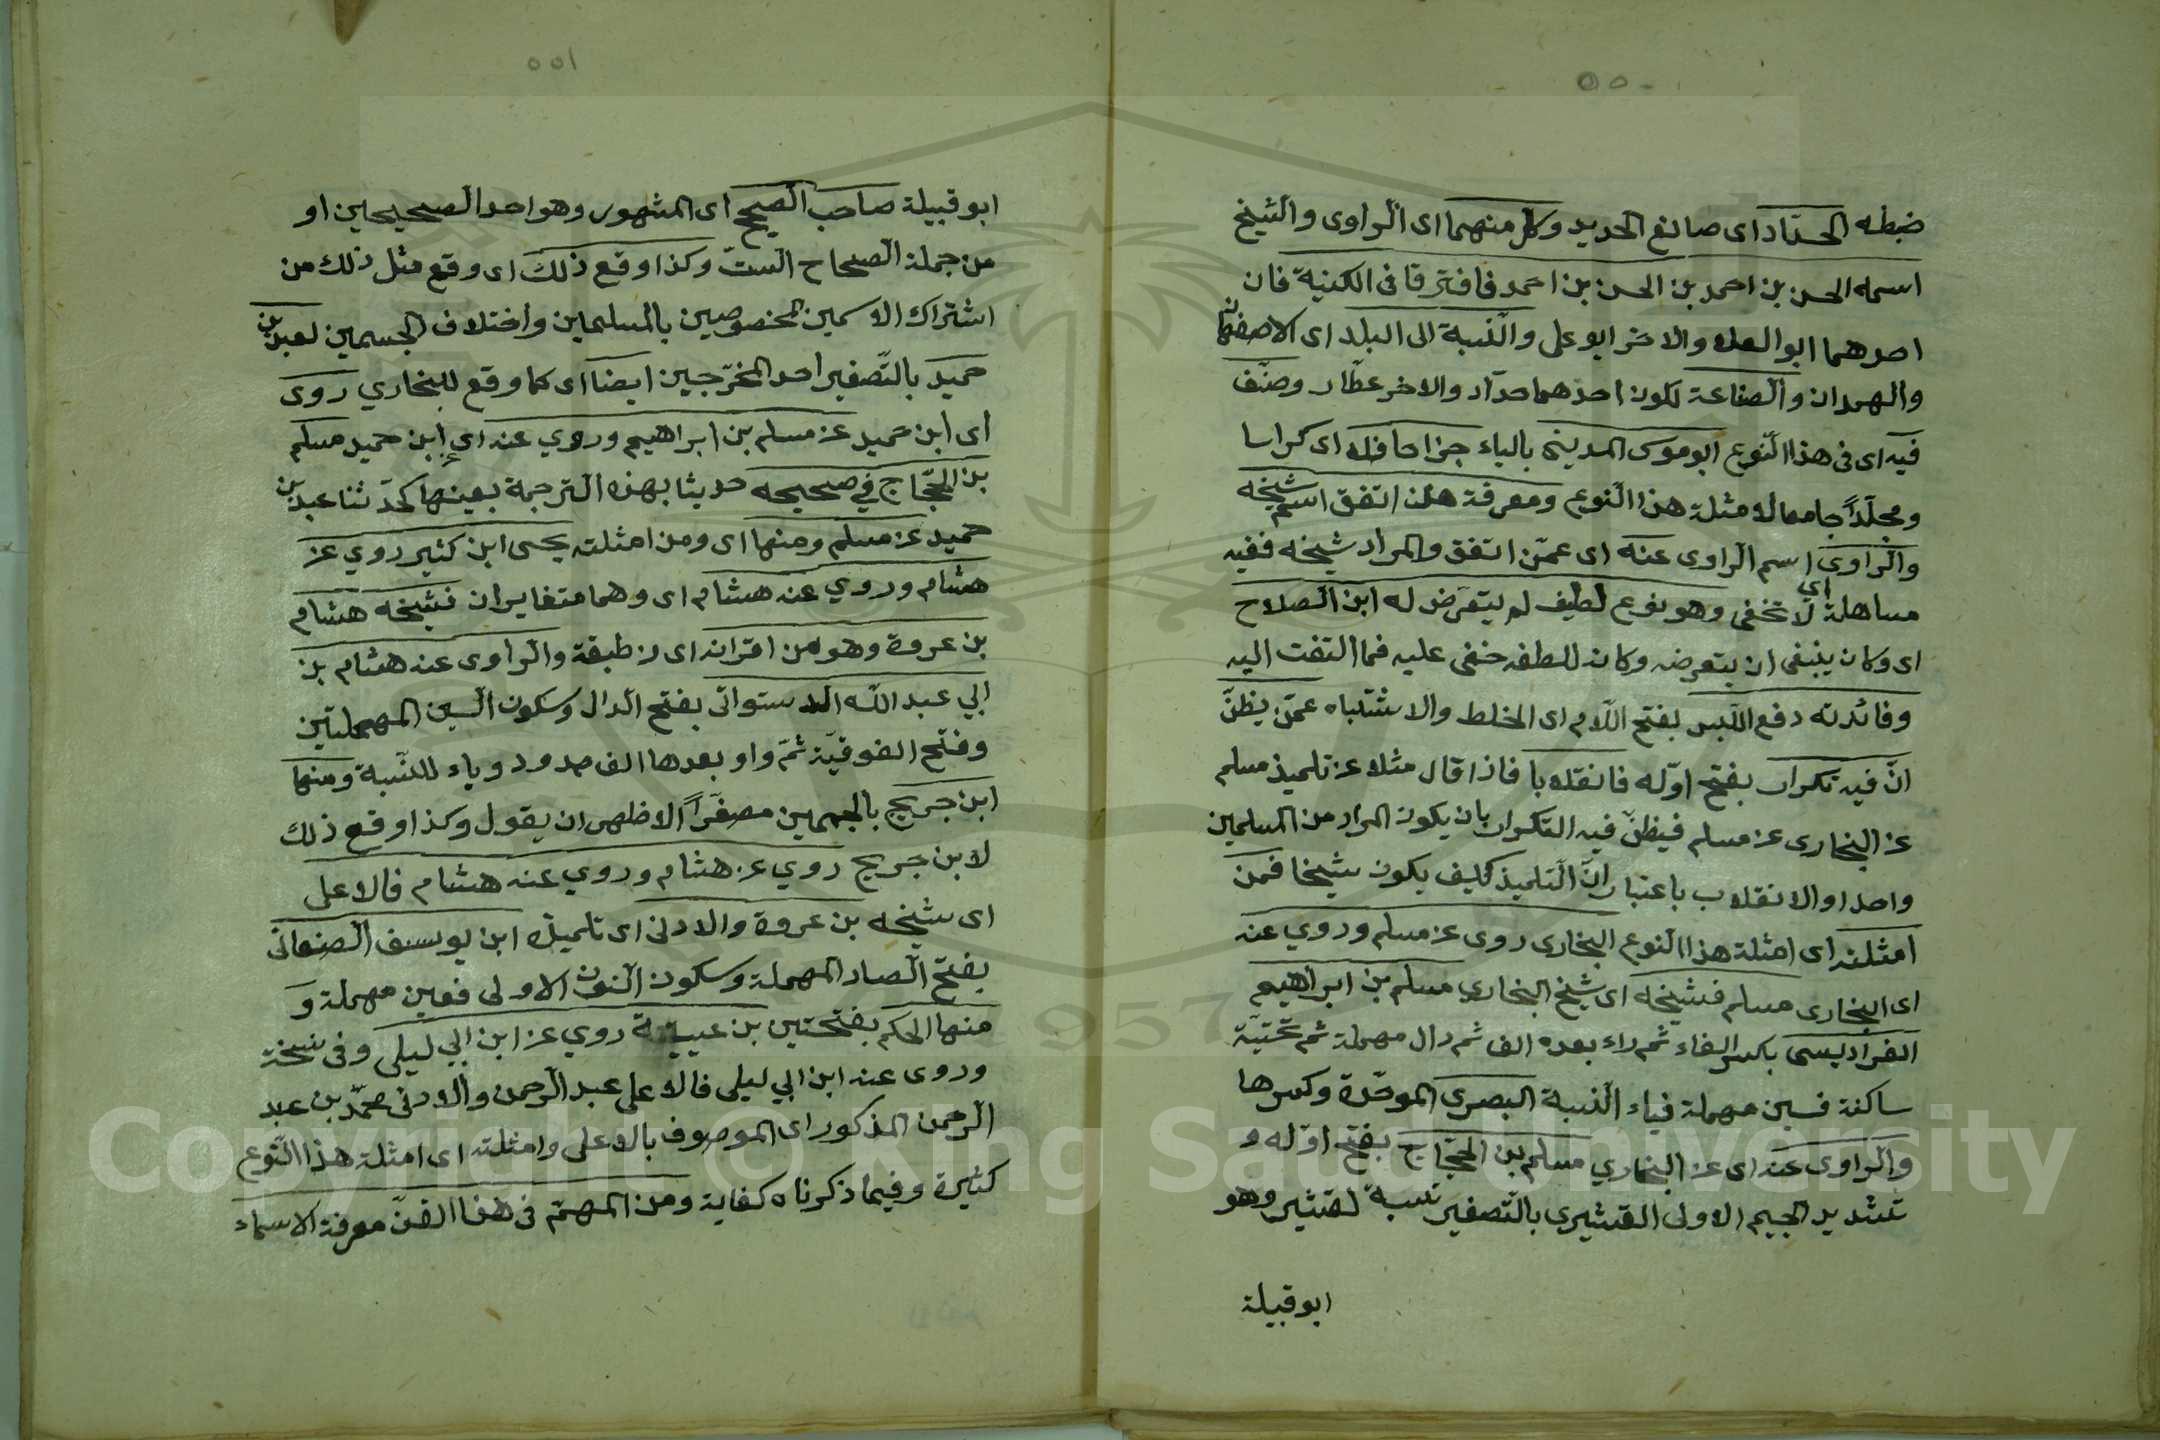 ٥٥٠
ضبطه الحدّاد اى صانع الحديد وكل منهما اى الراوى والشيخ
اسمه الحسن بن احمد بن الحسن بن احمد فافترقا فى الكنية فان
احدهما ابو العلاء والاخر ابو على والنسبة الى البلد اى الاصفهان
والهمدان والصناعة لكون احدهما حدّاد والاخر عطّار وصنّف
فيه اى فى هذا النّوع ابو موسى المدينى بالياء جزا حافلا اى كراسا
ومجلّداً جامعا لامثلة هذا النوع ومعرفة من اتفق اسم شيخه
والراوى اسم الراوى عنه اى عمّن اتفق والمراد شيخه ففيه
مساهلة اي لا تخفى وهو نوع لطيف لم يتعرّض له ابن الصلاح
اى وكان ينبغى ان يتعرضه وكان للطفه خفى عليه فما التفت اليه
وفائدته دفع اللبس بفتح اللّام اى الخلط والاشتباه عمّن يظنّ
انّ فيه تكرار بفتح اوّله فانقلابا فاذا قال مثلا عن تلميذ مسلم
عن البخارى عن مسلم فيظنّ فيه التكرار بان يكون المراد من المسلمين
واحدا والانقلاب باعتبار انّ التلميذ كيف يكون شيخا فمن
امثلته اى امثلة هذا النوع البخارى روى عن مسلم وروي عنه
اى البخارى مسلم فشيخه اى شيخ البخاري مسلم بن ابراهيم
الفراديسى بكسر الفاء ثم راء بعده الف ثم دال مهملة ثم تحتيّة
ساكنة فسين مهملة فياء النسبة البصرى الموحّدة وكسرها
والراوى عنه اى عن البخاري مسلم بن الحجّاج بفتح اوّله و
تشديد الجيم الاولى القشيرى بالتّصغير نسبة لقشير وهو
ابو قبيلة
٥٥١
ابو قبيلة صاحب الصحيح اى المشهور وهو احد الصحيحين او
من جملة الصحاح الستّ وكذا وقع ذلك اى وقع مثل ذلك من
اشتراك الاسمين المخصوصين بالمسلمين واختلاف الجسمين لعبد بن
حميد بالتّصغير احد المخرّجين ايضا اى كما وقع للبخاري روى
اى ابن حميد عن مسلم بن ابراهيم وروي عنه اى ابن حميد مسلم
بن الحجّاج في صحيحه حديثا بهذه الترجمة بعينها كحدّثنا عبد بن
حميد عن مسلم ومنها اى ومن امثلته يحيى ابن كثير روي عن
هشام وروي عنه هشام اى وهما متغايران فشيخه هشام
بن عروة وهو من اقرانه اى من طبقة والراوى عنه هشام بن
ابي عبد الله الدستوائى بفتح الدال وسكون السين المهملتين
وفتح الفوقيّة ثمّ واو بعدها الف ممدود وياء للنّسبة ومنها
ابن جريج بالجيمين مصغّراً الاظهر ان يقول وكذا وقع ذلك
لابن جريج روي عن هشام وروي عنه هشام فالاعلى
اى شيخه بن عروة والادنى اى تلميذه ابن يوسف الصنعانى
بفتح الصاد المهملة وسكون النون الاولى فعين مهملة و
منها الحكم بفتحتين بن عيينة روي عن ابن ابي ليلى وفى نسخة
وروى عنه ابن ابي ليلى فالاعلى عبد الرحمن والادنى محمّد بن عبد
الرحمن المذكور اى الموصوف بالاعلى وامثلته اى امثلة هذا النّوع
كثيرة وفيما ذكرناه كفاية ومن المهمّ فى هذا الفنّ معرفة الاسماء
1957
Copyright © King Saud University